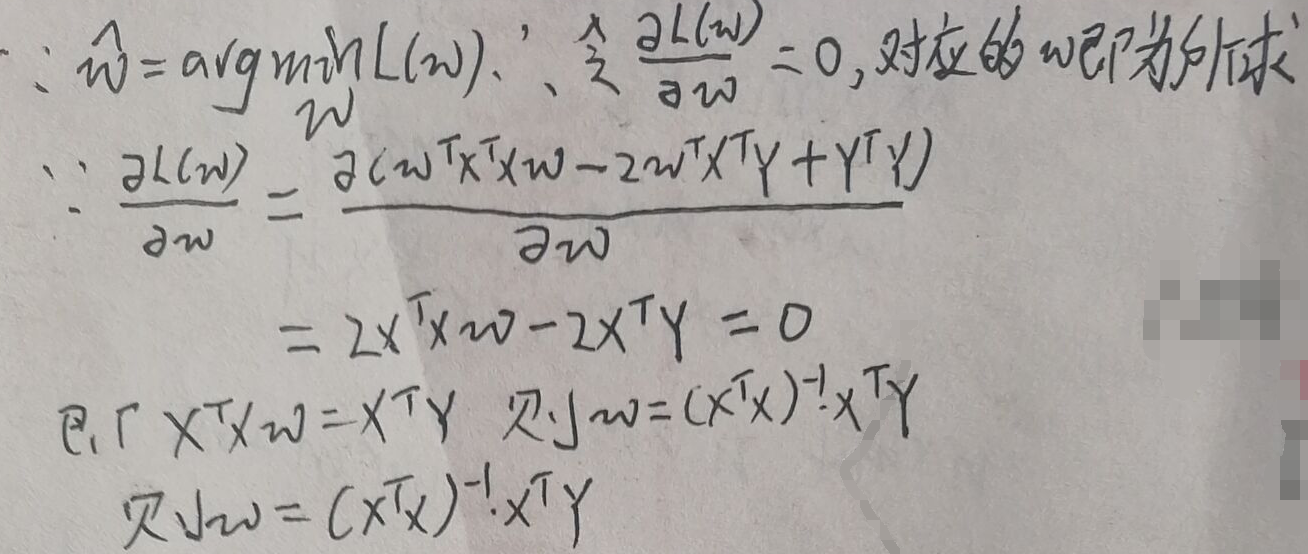 ∵ ŵ = argmin L(w). ∴ 令 ∂L(w)/∂w = 0, 对应的 w 即为所求
w
∵ ∂L(w)/∂w = ∂(wᵀXᵀXw − 2wᵀXᵀY + YᵀY)/∂w
= 2XᵀXw − 2XᵀY = 0
即 XᵀXw = XᵀY 则 w = (XᵀX)⁻¹·XᵀY
则 w = (XᵀX)⁻¹·XᵀY